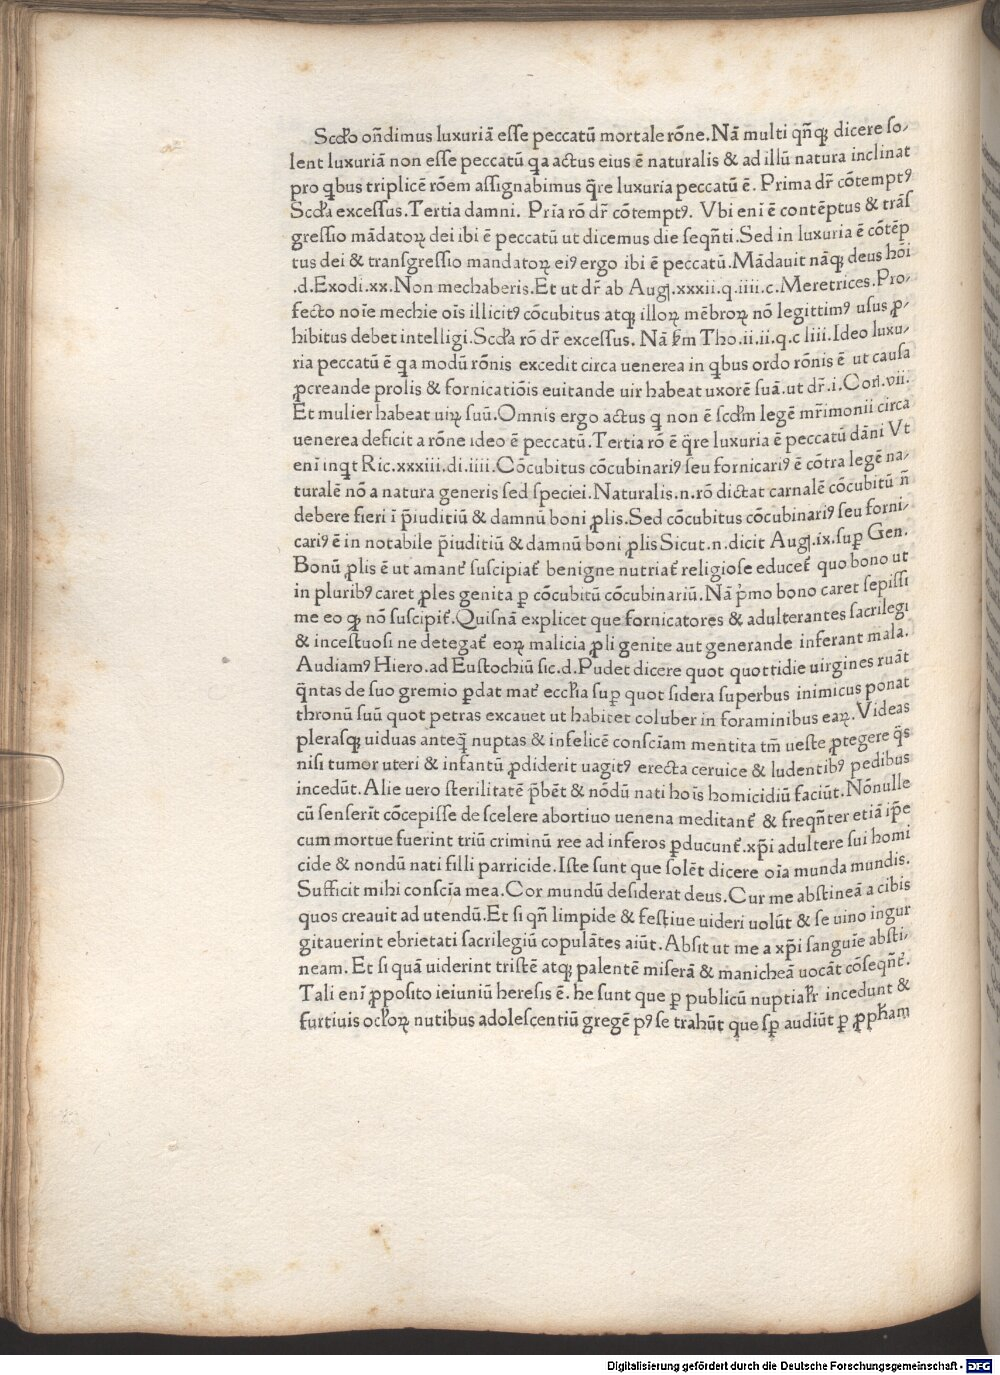 Scḋo on̄dimus luxuriā esse peccatū mortale rōne. Nā multi qn̄qꝫ dicere so⸗
lent luxuriā non esse peccatū qa actus eius ē naturalis & ad illū natura inclinat
pro qbus triplicē rōem assignabimus q̄re luxuria peccatū ē. Prima dr̄ cōtemptꝰ
Scḋa excessus. Tertia damni. Pria rō dr̄ cōtemptꝰ. Vbi eni ē contēptus & trās
gressio mādatoꝝ dei ibi ē peccatū ut dicemus die seqn̄ti. Sed in luxuria ē cōtēp
tus dei & transgressio mandatoꝝ eiꝰ ergo ibi ē peccatū. Mādauit nāqꝫ deus hōi
.d. Exodi.xx. Non mechaberis. Et ut dr̄ ab Aug̃.xxxii.q.iiii.c. Meretrices. Pro⸗
fecto noīe mechie oīs illicitꝰ cōcubitus atqꝫ illoꝝ mēbroꝝ nō legittimꝰ usus ꝓ⸗
hibitus debet intelligi. Scḋa rō dr̄ excessus. Nā ẜm Tho.ii.ii.q.c liii. Ideo luxu⸗
ria peccatū ē qa modū rōnis excedit circa uenerea in qbus ordo rōnis ē ut causa
ꝓcreande prolis & fornicatiōis euitande uir habeat uxorē suā. ut dr̄.i. Cori.vii.
Et mulier habeat uiꝝ suū. Omnis ergo actus q non ē scḋm legē mr̄imonii circa
uenerea deficit a rōne ideo ē peccatū. Tertia rō ē q̄re luxuria ē peccatū dāni Vt
eni inqt Ric.xxxiii.di.iiii. Cōcubitus cōcubinariꝰ seu fornicariꝰ ē cōtra legē na⸗
turalē nō a natura generis sed speciei. Naturalis.n.rō dictat carnalē cōcubitū n̄
debere fieri ī p̄iuditiū & damnū boni ꝓlis. Sed cōcubitus cōcubinariꝰ seu forni⸗
cariꝰ ē in notabile p̄iuditiū & damnū boni ꝓlis Sicut.n.dicit Aug̃.ix.suꝑ Gen.
Bonū ꝓlis ē ut amanť suscipiať benigne nutriať religiose educeť quo bono ut
in pluribꝰ caret ꝓles genita ꝑ cōcubitū cōcubinariū. Nā p̍mo bono caret sepissi
me eo qꝫ nō suscipiť. Quisnā explicet que fornicatores & adulterantes sacrilegi
& incestuosi ne detegať eoꝝ malicia ꝓli genite aut generande inferant mala.
Audiamꝰ Hiero. ad Eustochiū sic.d. Pudet dicere quot quottidie uirgines ruāt
q̄ntas de suo gremio ꝑdat mať eccƚia suꝑ quot sidera superbus inimicus ponat
thronū suū quot petras excauet ut habitet coluber in foraminibus eaꝝ. Videas
plerasqꝫ uiduas anteq̄ nuptas & infelicē consciam mentita tm̄ ueste ꝓtegere q̄s
nisi tumor uteri & infantū ꝓdiderit uagitꝰ erecta ceruice & ludentibꝰ pedibus
incedūt. Alie uero sterilitatē p̄bēt & nōdū nati hois homicidiū faciūt. Nōnulle
cū senserīt cōcepisse de scelere abortiuo uenena meditanť & freqn̄ter etiā ip̄e
cum mortue fuerint triū criminū ree ad inferos ꝑducunť. xp̄i adultere sui homi
cide & nondū nati filii parricide. Iste sunt que solēt dicere oīa munda mundis.
Sufficit mihi conscīa mea. Cor mundū desiderat deus. Cur me abstineā a cibis
quos creauit ad utendū. Et si qn̄ limpide & festiue uideri uolūt & se uino ingur
gitauerint ebrietati sacrilegiū copulātes aiūt. Absit ut me a xp̄i sanguīe absti⸗
neam. Et si quā uiderint tristē atqꝫ palentē miserā & manicheā uocāt cōseqn̄ť.
Tali eni ꝓposito ieiuniū heresis ē. he sunt que ꝑ publicū nuptiaƚr incedunt &
furtiuis ocƚoꝝ nutibus adolescentiū gregē pꝰ se trahūt que sꝑ audiūt ꝑ ꝓpħam
Digitalisierung gefördert durch die Deutsche Forschungsgemeinschaft - DFG